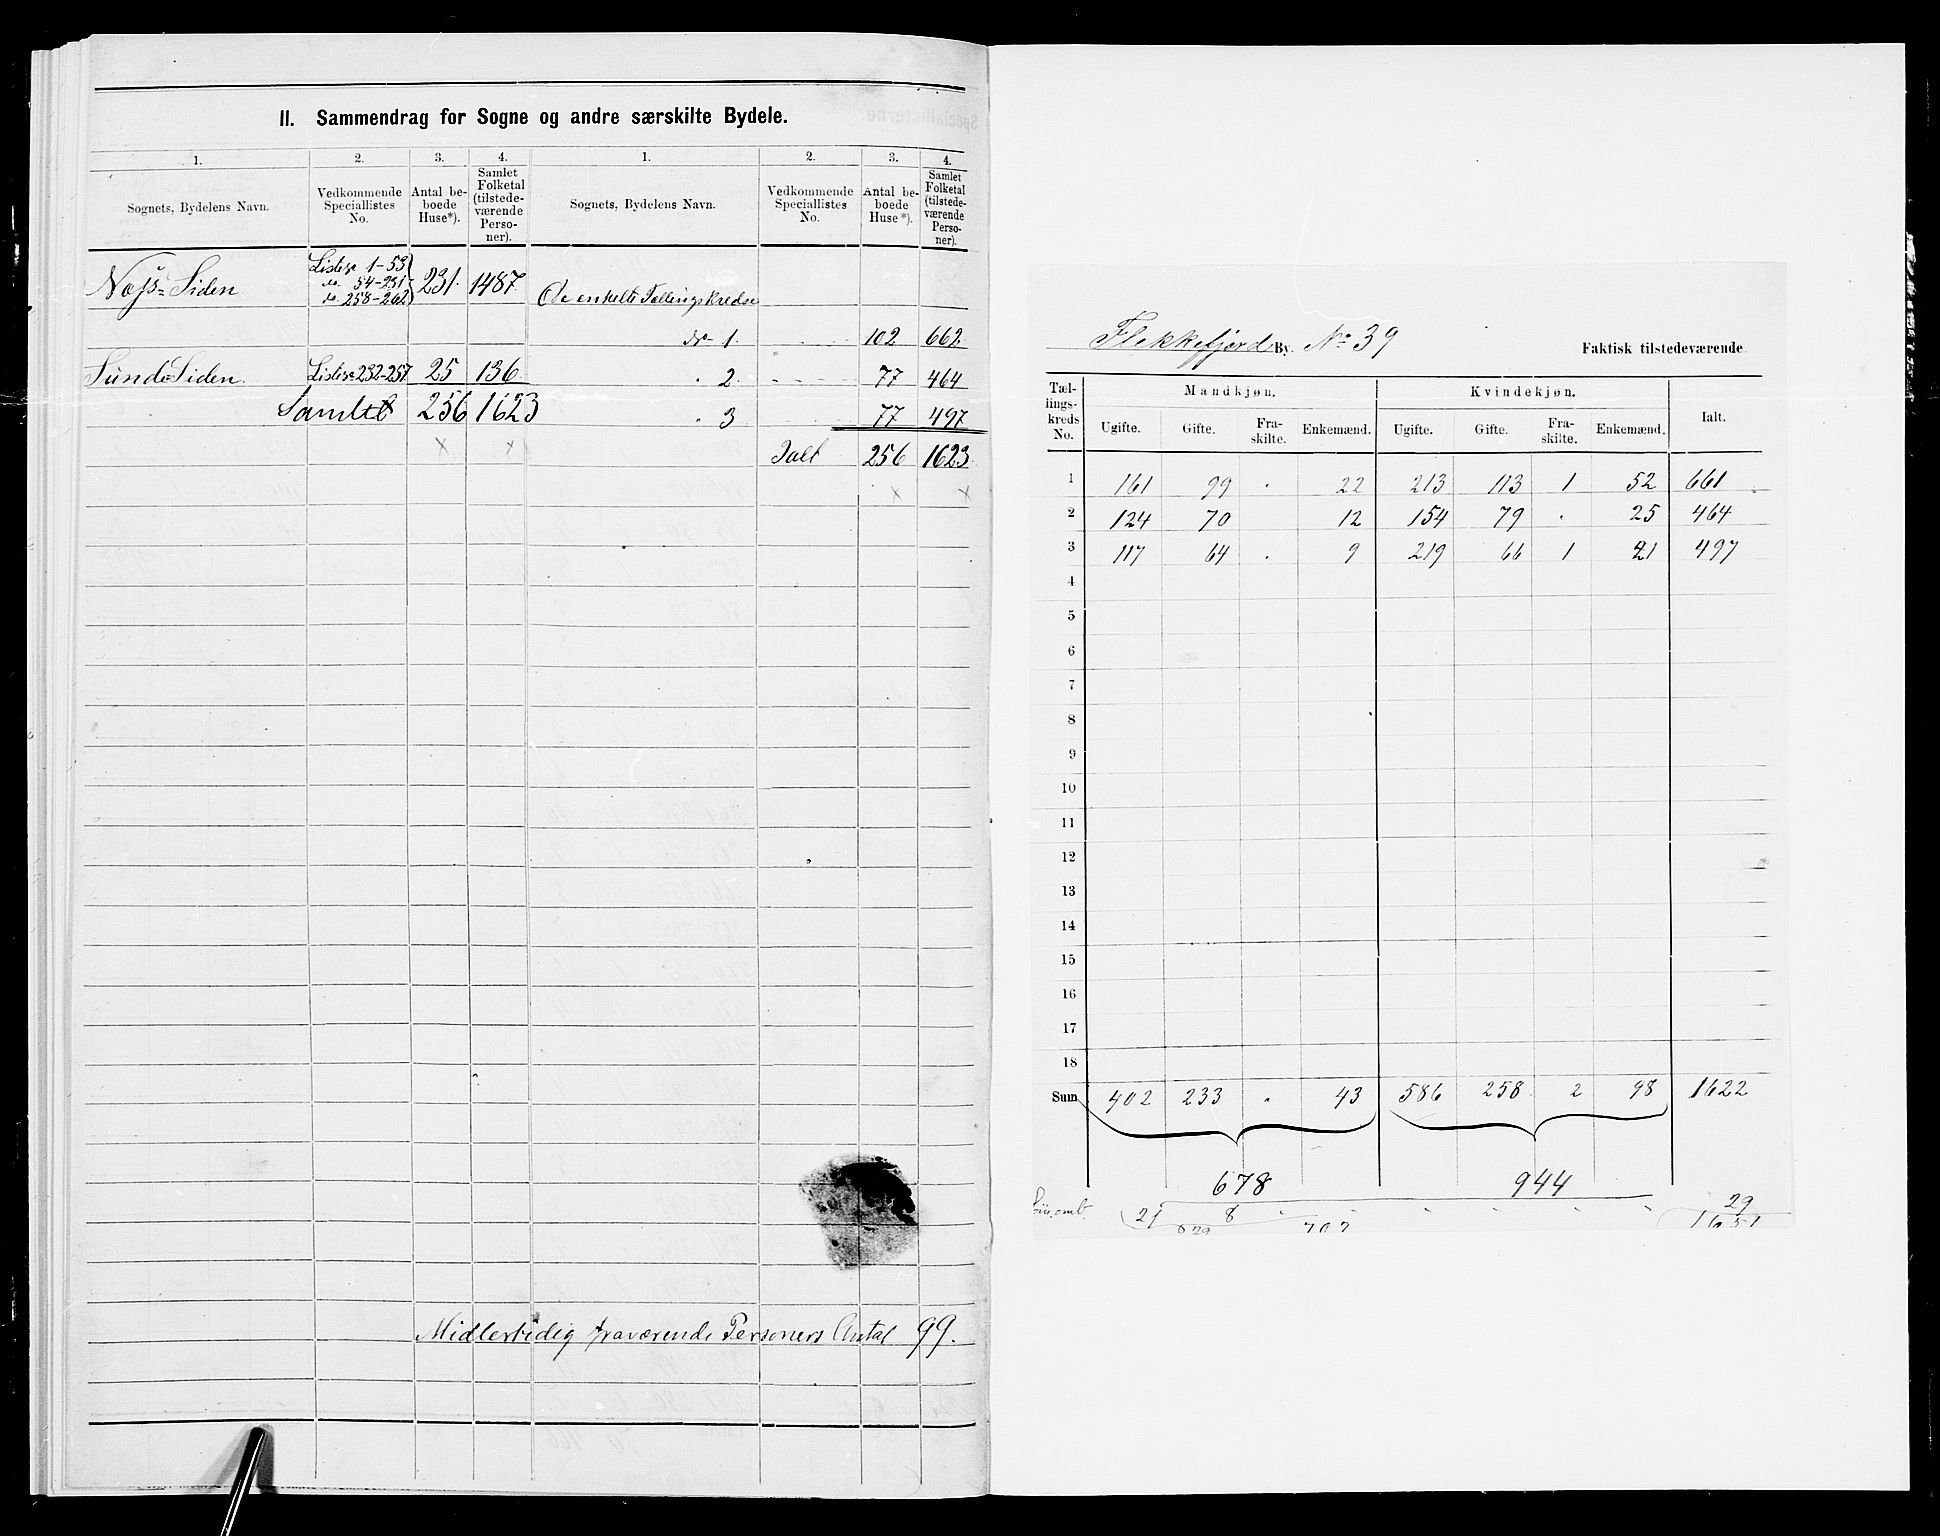 II. Sammendrag for Sogne og andre særskilte Bydele.
1. 2. 3. 4. 1. 2. 3. 4.
Sognets, Bydelens Navn. Vedkommende Speciallistes No. Antal beboede Huse*). Samlet Folketal (tilstedeværende Personer). Sognets, Bydelens Navn. Vedkommende Speciallistes No. Antal beboede Huse*). Samlet Folketal (tilstedeværende Personer).
Listerne 1-53
do 54-231
Næs-Siden do 258-262 231. 1487. De enkelte Tællingskredse
No 1. 102 662
Sunde Siden. Listerne 232-257 25 136 " 2. 77 464
Samlet 256 1623 " 3 77 497
Ialt 256 1623
Midlertidig fraværende Personers Antal 99.
Flekkefjord By. No 39 Faktisk tilstedeværende
Tællingskreds No. Mandkjøn. Kvindekjøn. Ialt.
Ugifte. Gifte. Fraskilte. Enkemænd. Ugifte. Gifte. Fraskilte. Enkemænd.
1 161 99 . 22 213 113 1 52 661
2 124 70 12 154 79 . 25 464
3 117 64 . 9 219 66 1 21 497
4
5
6
7
8
9
10
11
12
13
14
15
16
17
18
Sum 402 233 . 43 586 258 2 98 1622
678 944
21 8 29
629 707 1651